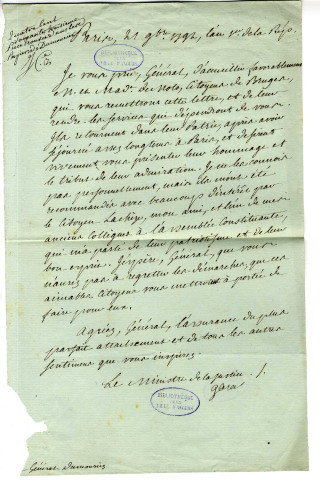 Paris, 9bre 1792, l'an 1er de la Rép.
Je vous prie, Général, d'accueillir favorablement
M. et Made. de Nolo, Citoyens de Bruges,
qui vous remettront cette lettre, et de leur
rendre les services qui dépendront de vous.
Ils retournent dans leur Patrie, après avoir
séjourné assez longtems à Paris, et desirent
vivement vous présenter leur hommage et
le tribut de leur admiration. Je ne les connois
pas personnellement, mais ils m'ont été
recommandés avec beaucoup d'intérêt par
le Citoyen mon ami, et l'un de mes
anciens Collègues à l'assemblée Constituante,
qui m'a parlé de leur patriotisme et de leur
bon esprit. J'espère, Général, que vous
n'aurez pas à regretter les démarches, que ces
aimables Citoyens vous mettront à portée de
faire pour eux.
Agréez, Général, l'assurance du plus
parfait attachement et de tous les autres
sentimens que vous inspirez.
Le Ministre de la Justice
Garat
BIBLIOTHEQUE
Général Dumouriez